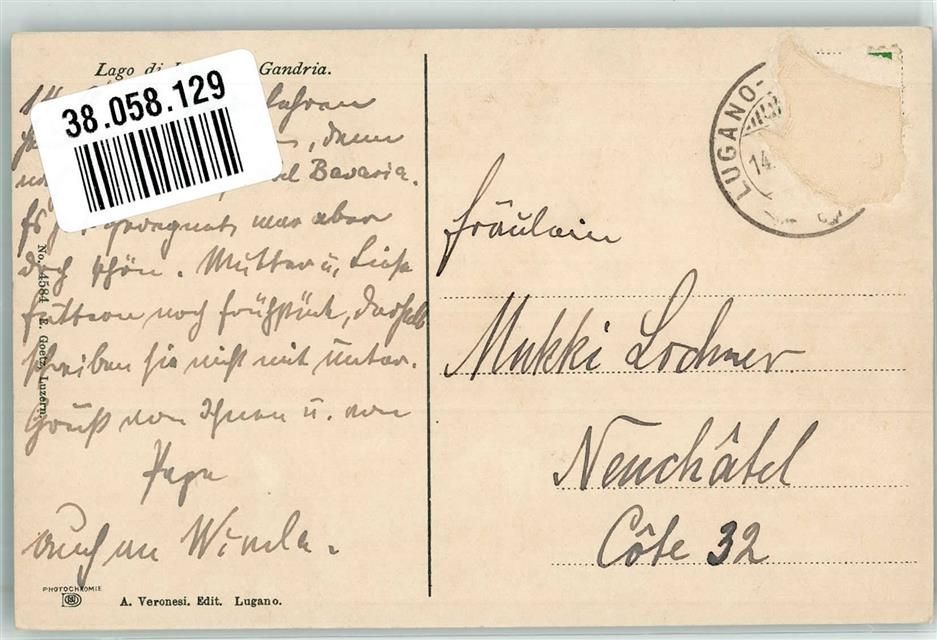 Lago di Gandria.
38.058.129
14. fahren
, denn
Bavaria.
Es geregnet, war aber
doch schön. Mutter u. Liese
futtern noch Frühstück, deshalb
schreiben sie nicht mit unter.
Gruß von Ihnen u. von
Papa
Auch an
No. 4584 E. Goetz, Luzern.
PHOTOCHROMIE
A. Veronesi. Edit. Lugano.
LUGANO
14.
Fräulein
Mukki Lochner
Neuchâtel
Côte 32